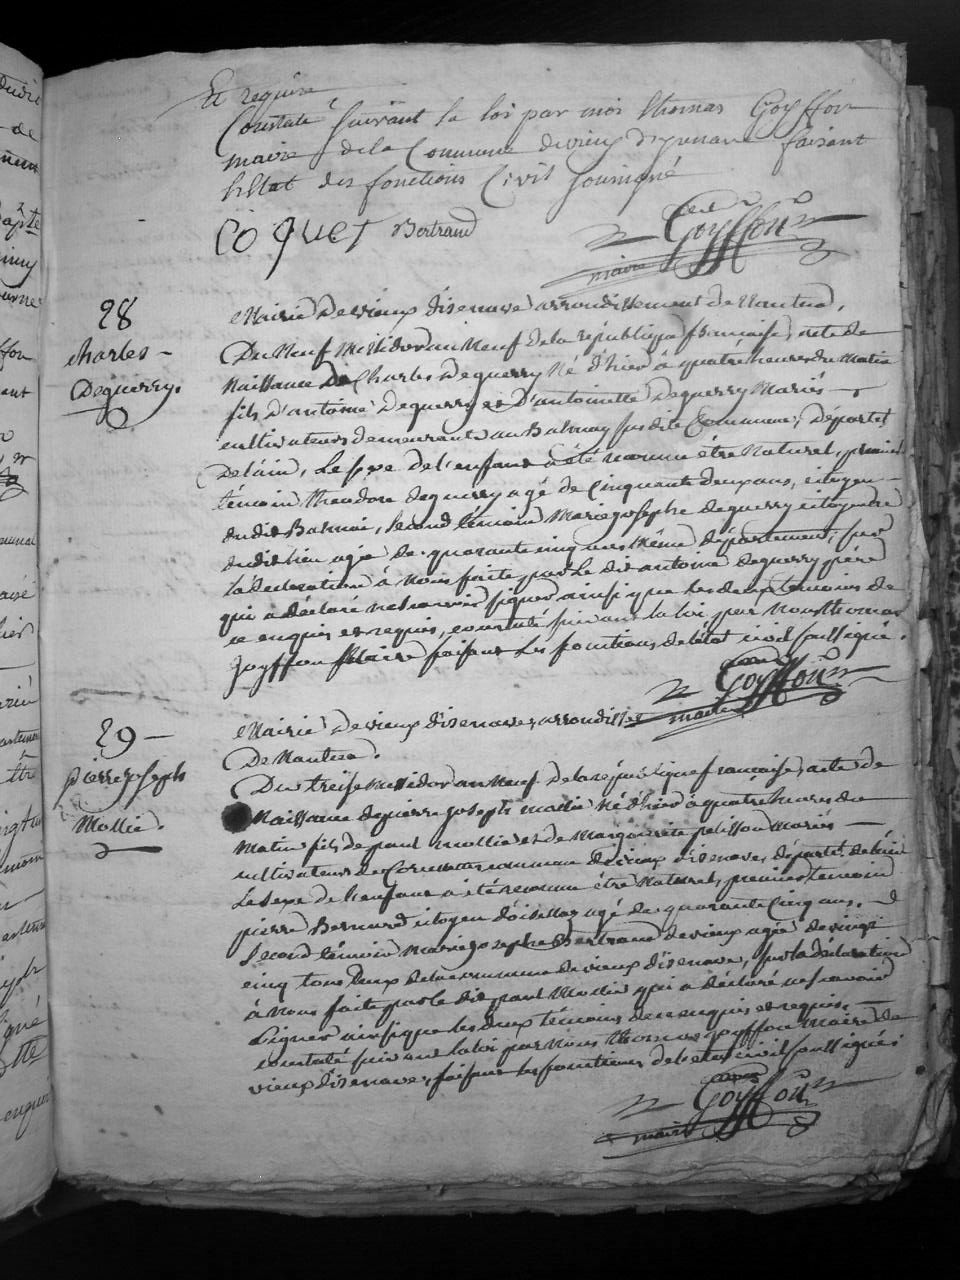 Et requis
Constaté suivant la loi par moi thomas Goyffon
maire de la Commune de vieux d'yzenave faisant
les fonctions Civil soussigné
COQUET Bertrand
Goyffon
maire
28
charles
Deguerry.
Mairie De vieux d'isenave arrondissement de Nantua.
Du Neuf Messidor an Neuf de la république française, acte de
Naissance De Charles Deguerry Né d'hier à quatre heures du Matin
fils d'antoine Deguerry et D'antoinette Deguerry Mariés
cultivateurs demeurants au Balmay susdite Commune, départet
De l'ain, Le sexe de l'enfant a été reconnu être Naturel, premier
témoin théodore deguerry agé de Cinquante deux ans, citoyen
dudit Balmai, second témoin Mariejosephe deguerry citoyenne
dudit lieu agée de quarante cinq ans même département, sur
la declaration à Nous faite par Le dit antoine deguerry père
qui a déclaré ne savoir signer ainsi que les deux temoins de
ce enquis et requis, constaté suivant la loi par Nous thomas
goyffon Maire faisant Les fonctions de l'état civil soussigné.
Goyffon
maire
29
pierre joseph
Mollie.
Mairie De vieux d'isenave, arrondisst
De Nantua.
Du treise Messidor an Neuf de la république francaise, acte de
Naissance de pierre joseph mollie Né d'hier à quatre heures du
Matin fils de paul mollie et de Marguerite pelisson Mariés
cultivateurs de commune de vieux d'isenave, départet de l'ain
Le sexe de l'enfant a été reconnu être Naturel, premier temoin
pierre Bernard citoyen d'oisellaz agé de quarante Cinq ans,
second témoin Mariejosephe Bertrand de vieux agée de vingt
cinq tous deux de la commune de vieux d'isenave, sur la déclaration
à Nous faite par le dit paul Mollie qui a déclaré ne savoir
signer ainsi que les deux témoins de ce enquis et requis,
constaté suivant la loi par Nous thomas goyffon Maire de
vieux d'isenave, faisant les fonctions de l'etat civil soussigné
Goyffon
maire